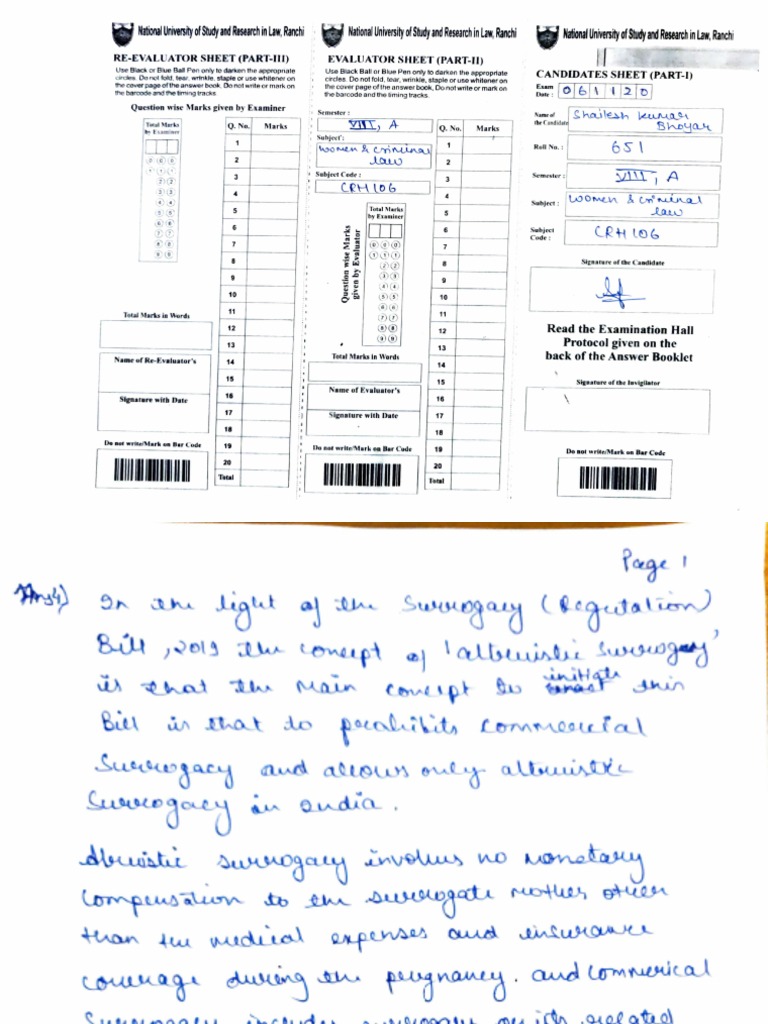 National University of Study and Research in Law, Ranchi
RE-EVALUATOR SHEET (PART-III)
Use Black or Blue Ball Pen only to darken the appropriate
circles. Do not fold, tear, wrinkle, staple or use whitener on
the cover page of the answer book. Do not write or mark on
the barcode and the timing tracks.
Question wise Marks given by Examiner
Total Marks
by Examiner
0 0 0
1 1 1
2 2
3 3
4 4
5 5
6 6
7 7
8 8
9 9
Q. No. Marks
1
2
3
4
5
6
7
8
9
10
11
12
13
14
15
16
17
18
19
20
Total
Total Marks in Words
Name of Re-Evaluator's
Signature with Date
Do not write/Mark on Bar Code
National University of Study and Research in Law, Ranchi
EVALUATOR SHEET (PART-II)
Use Black Ball or Blue Pen only to darken the appropriate
circles. Do not fold, tear, wrinkle, staple or use whitener on
the cover page of the answer book. Do not write or mark on
the barcode and the timing tracks.
Semester :
VIII, A
Subject :
Women & criminal
law
Subject Code :
CRH106
Question wise Marks
given by Evaluator
Total Marks
by Examiner
0 0 0
1 1 1
2 2
3 3
4 4
5 5
6 6
7 7
8 8
9 9
Q. No. Marks
1
2
3
4
5
6
7
8
9
10
11
12
13
14
15
16
17
18
19
20
Total
Total Marks in Words
Name of Evaluator's
Signature with Date
Do not write/Mark on Bar Code
National University of Study and Research in Law, Ranchi
CANDIDATES SHEET (PART-I)
Exam
Date : 061120
Name of
the Candidate Shailesh Kumar
Bhoyar
Roll No. : 651
Semester : VIII, A
Subject : Women & criminal
law
Subject
Code : CRH106
Signature of the Candidate
Read the Examination Hall
Protocol given on the
back of the Answer Booklet
Signature of the Invigilator
Do not write/Mark on Bar Code
Page 1
Ans4) In the light of the Surrogacy (Regulation)
Bill, 2019 the concept of 'altruistic surrogacy'
is that the main concept to initiate this
Bill is that to prohibits commercial
surrogacy and allows only altruistic
surrogacy in India.
Altruistic surrogacy involves no monetary
compensation to the surrogate mother other
than the medical expenses and insurance
coverage during the pregnancy. and commerical
surrogacy includes surrogacy or its related